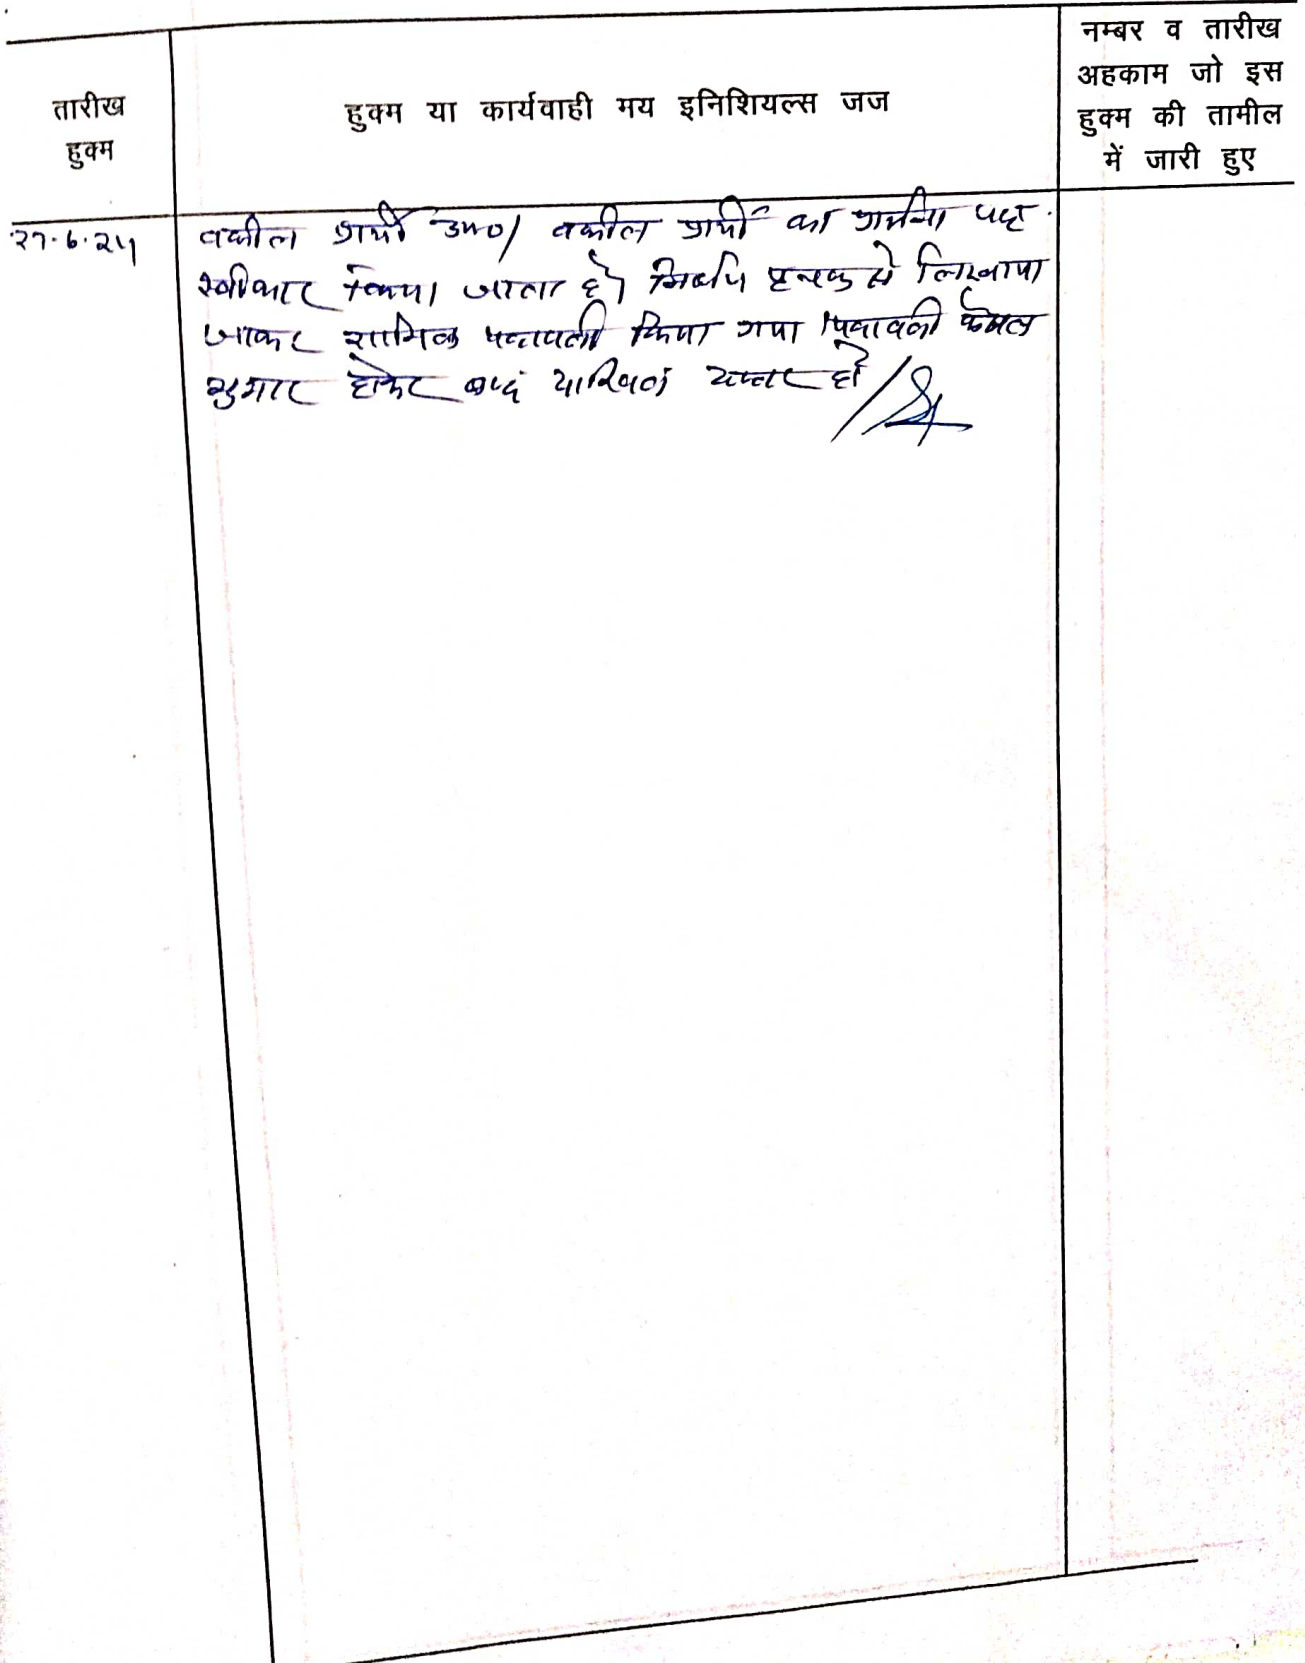 तारीख
हुक्म
हुक्म या कार्यवाही मय इनिशियल्स जज
नम्बर व तारीख
अहकाम जो इस
हुक्म की तामील
में जारी हुए
वकील प्रार्थी उप०/ वकील प्रार्थी का प्रार्थना पत्र
स्वीकार किया जाता है। निर्णय पृथक से लिखाया
जाकर शामिल पत्रावली किया गया। पत्रावली फैसल
शुमार होकर दफ्तर हो/